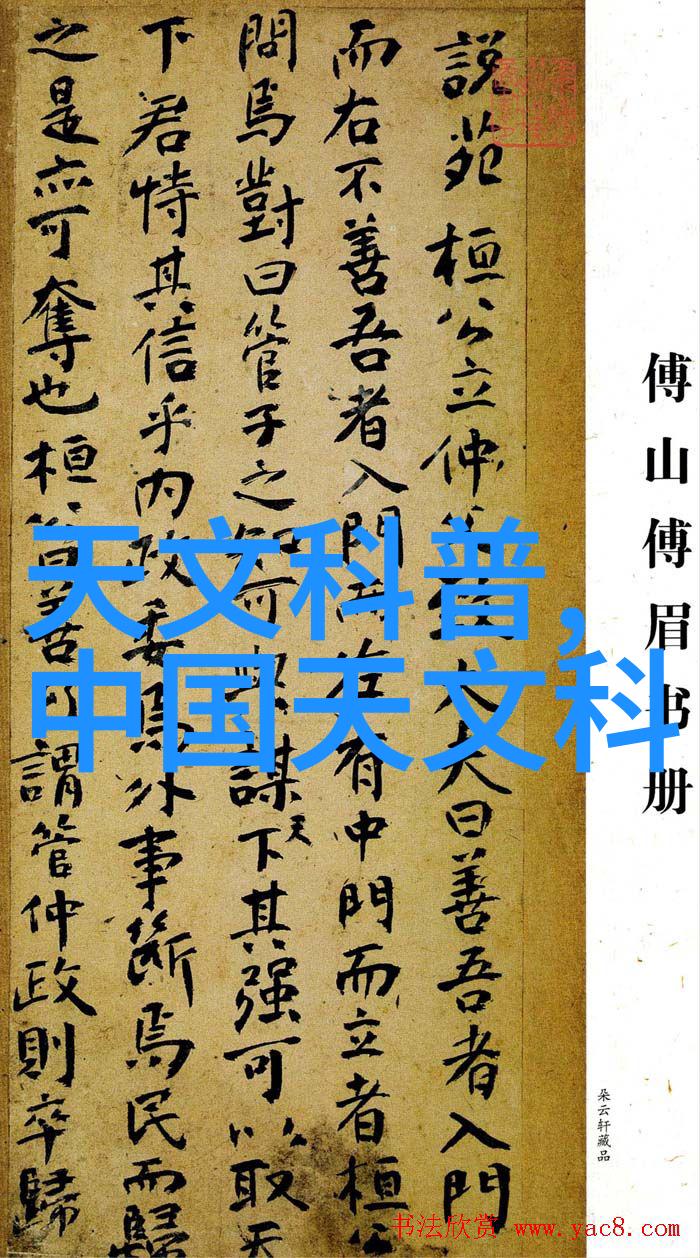 傅山傅眉书册
朵云轩藏品
説苑 桓公立仲大夫曰善吾者入門
而右不善吾者入門而左有中門而立者桓公
問焉對曰管子之知可與謀天下其强可以取天
下君恃其信乎内政委焉外事斷焉民而歸
之是亦可奪也桓公曰善乃謂管仲政則卒歸
天文科普,
中国天文科
书法欣赏 www.yac8.com